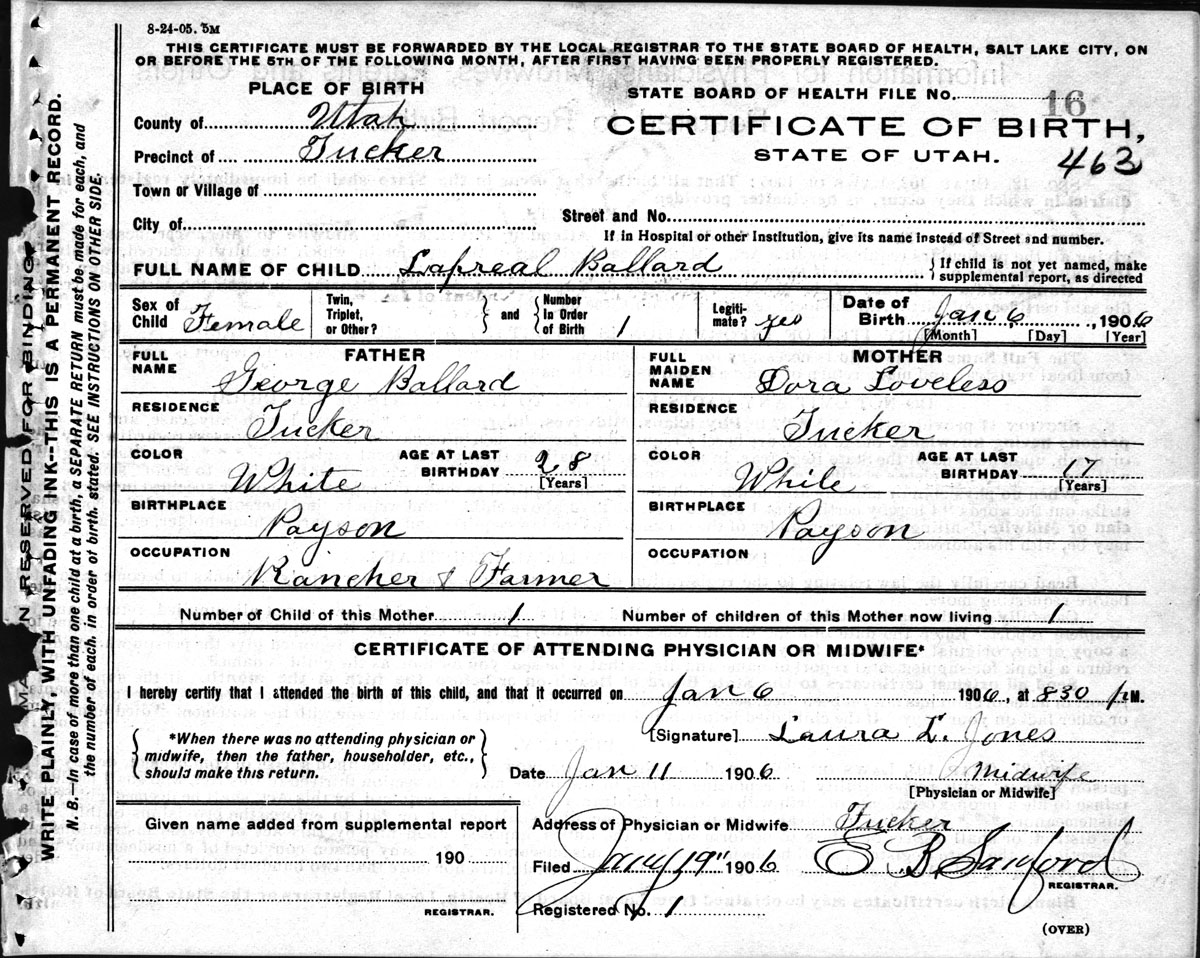 8-24-05. 5M
THIS CERTIFICATE MUST BE FORWARDED BY THE LOCAL REGISTRAR TO THE STATE BOARD OF HEALTH, SALT LAKE CITY, ON
OR BEFORE THE 5TH OF THE FOLLOWING MONTH, AFTER FIRST HAVING BEEN PROPERLY REGISTERED.
PLACE OF BIRTH
STATE BOARD OF HEALTH FILE NO. 16
County of Utah
CERTIFICATE OF BIRTH,
Precinct of Tucker
STATE OF UTAH. 463
Town or Village of
City of
Street and No.
If in Hospital or other Institution, give its name instead of Street and number.
FULL NAME OF CHILD Lapreal Ballard { If child is not yet named, make supplemental report, as directed
Sex of Child Female
Twin, Triplet, or Other? } and { Number In Order of Birth 1
Legitimate? yes
Date of Birth Jan 6, 1906
[Month] [Day] [Year]
FATHER
FULL NAME George Ballard
RESIDENCE Tucker
COLOR White AGE AT LAST BIRTHDAY 28 [Years]
BIRTHPLACE Payson
OCCUPATION Rancher & Farmer
MOTHER
FULL MAIDEN NAME Dora Loveless
RESIDENCE Tucker
COLOR White AGE AT LAST BIRTHDAY 17 [Years]
BIRTHPLACE Payson
OCCUPATION
Number of Child of this Mother 1 Number of children of this Mother now living 1
CERTIFICATE OF ATTENDING PHYSICIAN OR MIDWIFE*
I hereby certify that I attended the birth of this child, and that it occurred on Jan 6 1906, at 830 P M.
{ *When there was no attending physician or midwife, then the father, householder, etc., should make this return. }
[Signature] Laura L. Jones
Date Jan 11 1906 Midwife
[Physician or Midwife]
Given name added from supplemental report
190
REGISTRAR.
Address of Physician or Midwife Tucker
Filed Jany 19" 1906 E B Sanford
REGISTRAR.
Registered No. 1
(OVER)
MARGIN RESERVED FOR BINDING
WRITE PLAINLY WITH UNFADING INK--THIS IS A PERMANENT RECORD.
N. B.—In case of more than one child at a birth, a SEPARATE RETURN must be made for each, and
the number of each, in order of birth, stated. SEE INSTRUCTIONS ON OTHER SIDE.